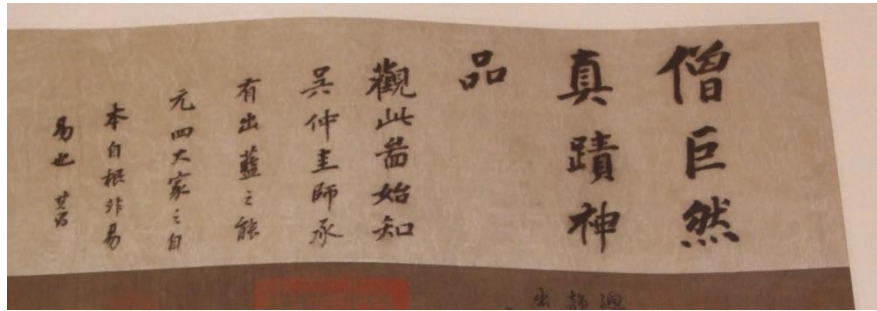 僧巨然
真蹟神
品
觀此啚始知
吴仲圭師承
有出藍之能
元四大家之自
本自根非易
易也 其昌